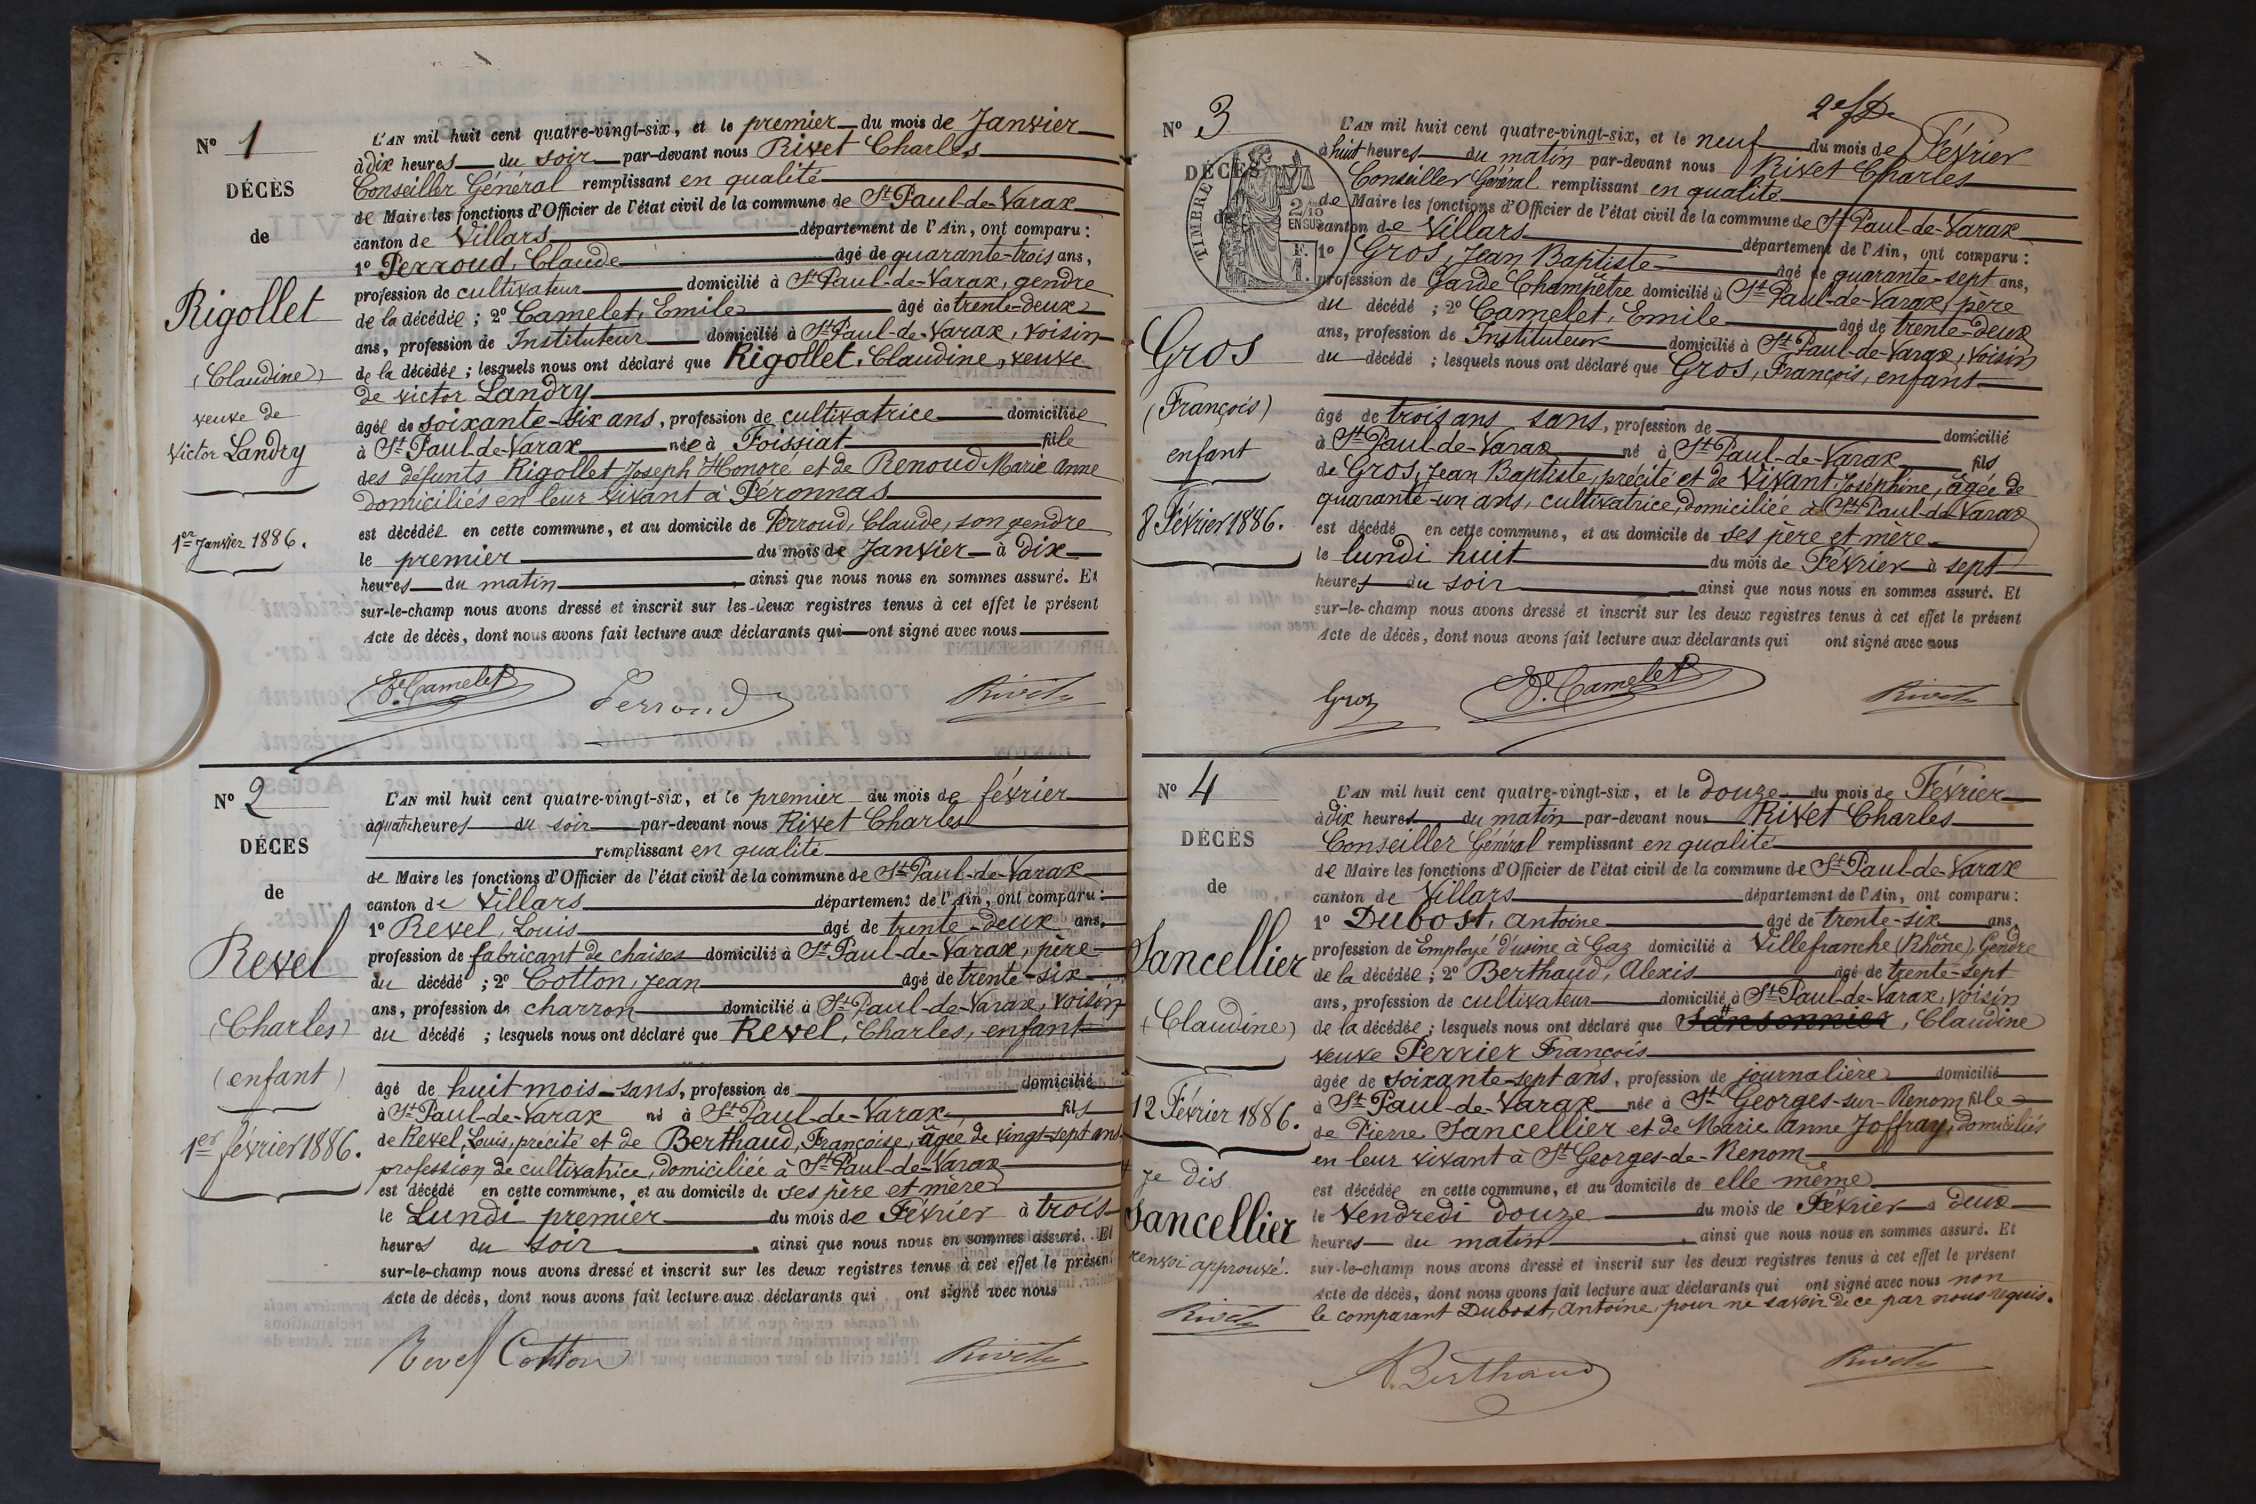 Nº 1
DÉCÈS
de
Rigollet
(Claudine)
veuve de
Victor Landry
1er Janvier 1886.
L'AN mil huit cent quatre-vingt-six, et le premier du mois de Janvier
à dix heures du soir par-devant nous Rivet Charles
Conseiller Général remplissant en qualité
de Maire les fonctions d'Officier de l'état civil de la commune de St Paul-de-Varax
canton de Villars département de l'Ain, ont comparu :
1º Perroud, Claude âgé de quarante-trois ans,
profession de cultivateur domicilié à St Paul-de-Varax, gendre
de la décédée ; 2º Camelet, Emile âgé de trente-deux
ans, profession de Instituteur domicilié à St Paul-de-Varax, voisin
de la décédée ; lesquels nous ont déclaré que Rigollet, Claudine, veuve
de victor Landry
âgée de soixante-six ans, profession de cultivatrice domiciliée
à St Paul-de-Varax née à Foissiat fille
des défunts Rigollet Joseph Honoré et de Renoud Marie Anne
domiciliés en leur vivant à Péronnas
est décédée en cette commune, et au domicile de Perroud, Claude, son gendre
le premier du mois de Janvier à dix
heures du matin ainsi que nous nous en sommes assuré. Et
sur-le-champ nous avons dressé et inscrit sur les deux registres tenus à cet effet le présent
Acte de décès, dont nous avons fait lecture aux déclarants qui ont signé avec nous
E. Camelet Perroud Rivet
Nº 2
DÉCES
de
Revel
(Charles)
(enfant)
1er février 1886.
L'AN mil huit cent quatre-vingt-six, et le premier du mois de février
à quatre heures du soir par-devant nous Rivet Charles
remplissant en qualité
de Maire les fonctions d'Officier de l'état civil de la commune de St Paul-de-Varax
canton de Villars département de l'Ain, ont comparu :
1º Revel, Louis âgé de trente-deux ans,
profession de fabricant de chaises domicilié à St Paul-de-Varax, père
du décédé ; 2º Cotton, Jean âgé de trente-six
ans, profession de charron domicilié à St Paul-de-Varax, voisin
du décédé ; lesquels nous ont déclaré que Revel, Charles, enfant
âgé de huit mois sans, profession de domicilié
à St Paul-de-Varax né à St Paul-de-Varax, fils
de Revel, Louis, précité et de Berthaud, Françoise, âgée de vingt-sept ans
profession de cultivatrice, domiciliée à St Paul-de-Varax
est décédé en cette commune, et au domicile de ses père et mère
le Lundi premier du mois de Février à trois
heures du soir ainsi que nous nous en sommes assuré. Et
sur-le-champ nous avons dressé et inscrit sur les deux registres tenus à cet effet le présent
Acte de décès, dont nous avons fait lecture aux déclarants qui ont signé avec nous
Revel Cotton Rivet
2e f
Nº 3
DÉCÈS
de
TIMBRE
2/10
EN SUS
F.
1.
Gros
(François)
enfant
8 Février 1886.
L'AN mil huit cent quatre-vingt-six, et le neuf du mois de Février
à huit heures du matin par-devant nous Rivet Charles
Conseiller Général remplissant en qualité
de Maire les fonctions d'Officier de l'état civil de la commune de St Paul-de-Varax
canton de Villars département de l'Ain, ont comparu :
1º Gros, Jean Baptiste âgé de quarante-sept ans,
profession de Garde Champêtre domicilié à St Paul-de-Varax, père
du décédé ; 2º Camelet, Emile âgé de trente-deux
ans, profession de Instituteur domicilié à St Paul-de-Varax, voisin
du décédé ; lesquels nous ont déclaré que Gros, François, enfant
âgé de trois ans sans, profession de domicilié
à St Paul-de-Varax né à St Paul-de-Varax fils
de Gros, Jean Baptiste, précité et de Vivant, Joséphine, âgée de
quarante-un ans, cultivatrice, domiciliée à St Paul-de-Varax
est décédé en cette commune, et au domicile de ses père et mère
le lundi huit du mois de Février à sept
heures du soir ainsi que nous nous en sommes assuré. Et
sur-le-champ nous avons dressé et inscrit sur les deux registres tenus à cet effet le présent
Acte de décès, dont nous avons fait lecture aux déclarants qui ont signé avec nous
Gros E. Camelet Rivet
Nº 4
DÉCÈS
de
Sancellier
(Claudine)
12 Février 1886.
Je dis
Sancellier
renvoi approuvé.
Rivet
L'AN mil huit cent quatre-vingt-six, et le douze du mois de Février
à dix heures du matin par-devant nous Rivet Charles
Conseiller Général remplissant en qualité
de Maire les fonctions d'Officier de l'état civil de la commune de St Paul-de-Varax
canton de Villars département de l'Ain, ont comparu :
1º Dubost, Antoine âgé de trente-six ans,
profession de Employé d'usine à Gaz domicilié à Villefranche (Rhône), Gendre
de la décédée ; 2º Berthaud, Alexis âgé de trente-sept
ans, profession de cultivateur domicilié à St Paul-de-Varax, voisin
de la décédée ; lesquels nous ont déclaré que Sansonnier, Claudine
veuve Perrier François
âgée de soixante-sept ans, profession de journalière domicilié
à St Paul-de-Varax née à St Georges-sur-Renom fille
de Pierre Sancellier et de Marie Anne Joffray, domiciliés
en leur vivant à St Georges-de-Renom
est décédée en cette commune, et au domicile de elle même
le Vendredi douze du mois de Février à deux
heures du matin ainsi que nous nous en sommes assuré. Et
sur-le-champ nous avons dressé et inscrit sur les deux registres tenus à cet effet le présent
Acte de décès, dont nous avons fait lecture aux déclarants qui ont signé avec nous non
le comparant Dubost, Antoine, pour ne savoir de ce par nous requis.
A. Berthaud Rivet